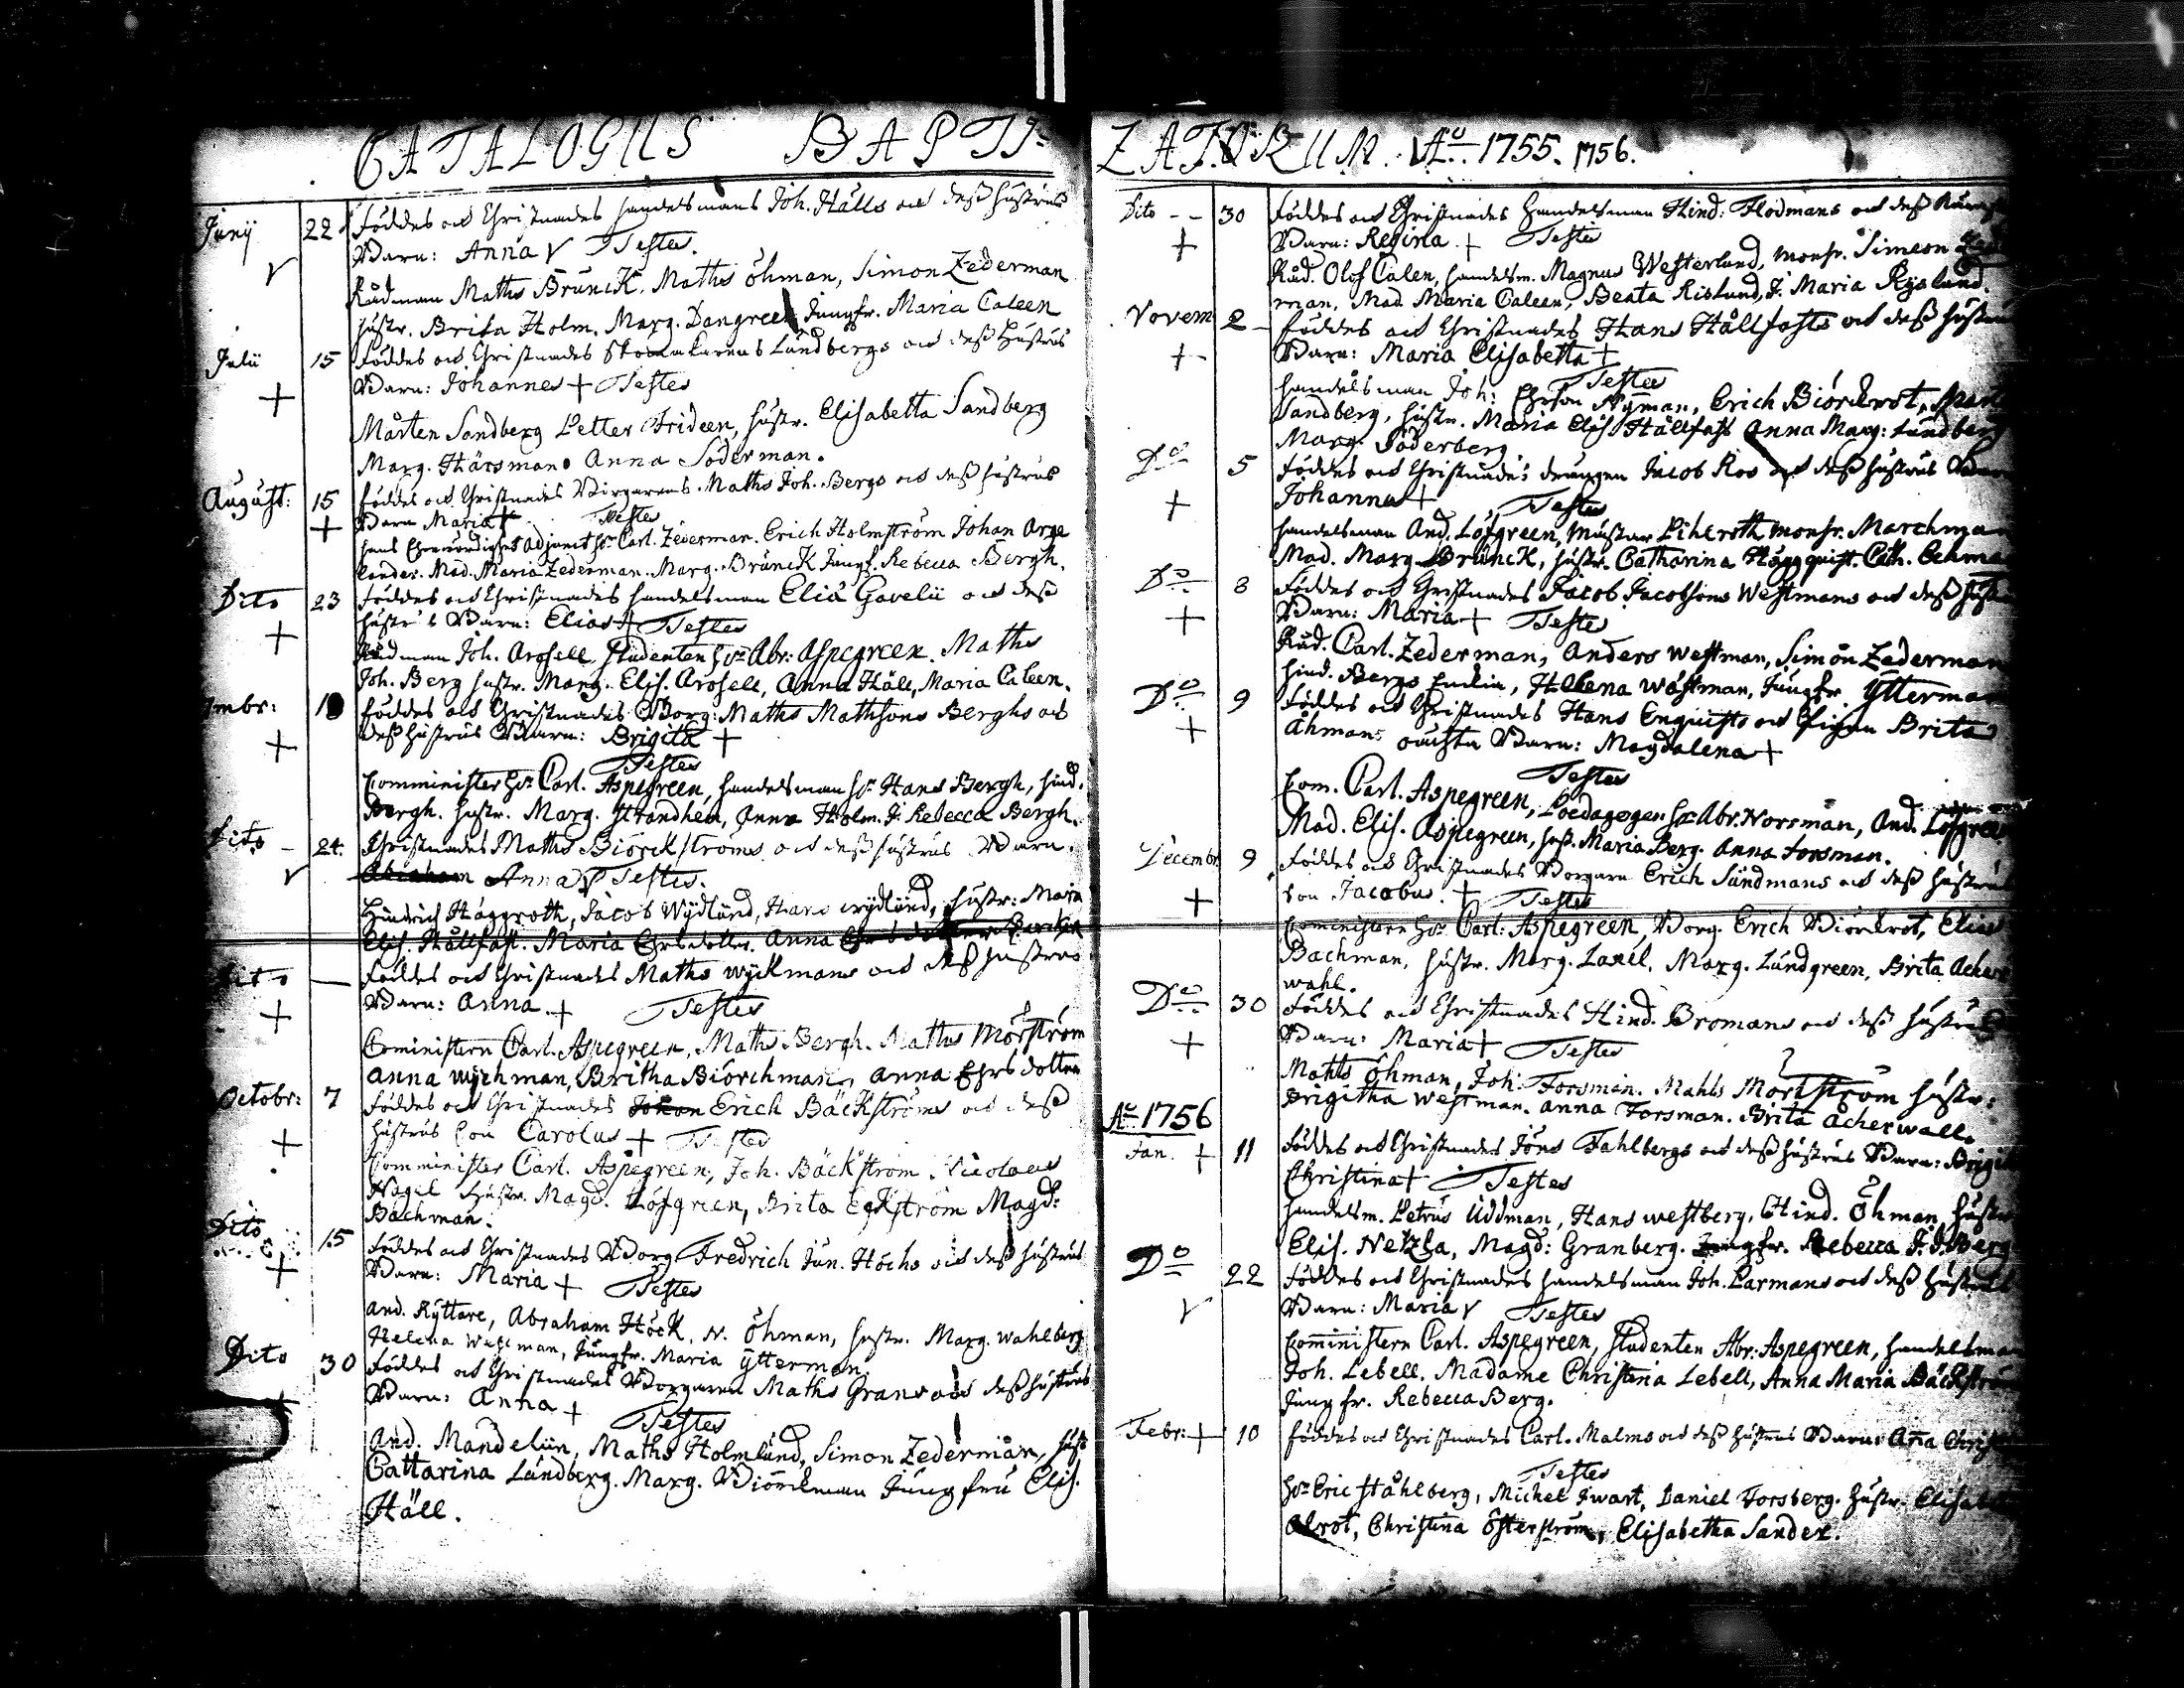 CATALOGUS BAPTI-
Junij 22 Föddes och Christnades handelsmans Joh. Hälls och deß hustrus
Barn: Anna V Testes.
Rådman Maths Brunck. Maths öhman, Simon Zederman
hustr. Brita Holm. Marg. Dangreen Jungfr. Maria Caleen
Julii 15 Föddes och Christnades Skomakarens Lundbergs och deß hustrus
Barn: Johannes + Testes
Mårten Sandberg Petter Frideen, hustr. Elisabetta Sandberg
Marg. Hårsman. Anna Söderman.
August: 15 föddes och Christnades Borgarens Maths Joh. Bergs och deß hustrus
+ Barn Maria + Testes
hans Ehrewördighet Adjunct Hr Carl. Zederman. Erich Holmström Johan Arge
lander. Mad. Maria Zederman. Marg. Brunck Jungf. Rebecca Bergh.
Dito 23 föddes och Christnades handelsman Eliæ Gavelii och deß
+ hustrus Barn: Elias + Testes
Rådman Joh. Arosell, studenten Hr Abr: Aspegreen. Maths
Joh. Berg hustr. Marg. Elis. Arosell, Anna Häll, Maria Caleen.
föddes och Christnades Borg: Maths Mathsons Berghs och
+ deß hustrus Barn: Brigita +
Testes
Comminister Hr Carl. Aspegreen, handelsman Hr Hans Bergh, Hind.
Bergh. hustr. Marg. Strandhén, Anna Holm. J. Rebecca Bergh.
Dito - 24. Christnades Maths Biörckströms och deß hustrus Barn.
V Abraham Anna V Testes.
Hindrich Häggroth, Jacob Wydlund, Hans wydlund, hustr: Maria
Elis. Hällfast. Maria Ehrsdotter. Anna
Dito — Föddes och Christnades Maths wyckmans och deß hustrus
+ Barn: Anna. + Testes
Coministern Carl. Aspegreen, Maths Bergh. Maths Morström
Anna wychman, Britha Biörchman, Anna Ehrsdotter
Octobr: 7 Föddes och Christnades Johan Erich Bäckströms och deß
+ hustrus son Carolus + Testes
Comminister Carl. Aspegreen, Joh. Bäckström. Nicolaus
Nagel hustr. Magd. Löfgreen, Brita Eckström Magd:
Bachman.
Dito 15 Föddes och Christnades Borg. Fredrich Jun. Höchs och deß hustrus
+ Barn: Maria + Testes
And. Ryttare, Abraham Höck, N. öhman, hustr. Marg. wahlberg
Helena Wahlman, Jungfr. Maria ytterman.
Dito 30 Föddes och Christnades Borgaren Maths Grans och deß hustrus
+ Barn: Anna +
Testes
And. Mandeliin, Maths Holmlund, Simon Zederman, hust
Cattarina Lundberg. Marg. Biörckman Jungfru Elis.
Häll.
ZATORUM. Ao. 1755. 1756.
Dito - - 30 Föddes och Christnades Handelsman Hind. Flodmans och deß
+ Barn: Regina. + Testes
Råd. Olof Calen, handelsm. Magnus Westerlund, monsr. Simeon
man, Mad. Maria Caleen, Beata Rislund, J. Maria Ryslund.
Novem 2 - Föddes och Christnades Hans Hällfasts och deß hustru
+ - Barn: Maria Elisabetta +
Testes
handelsman Joh: Ehrson Nyman, Erich Biörckrot,
Sandberg, hustr. Maria Elis Hällfast Anna Marg: Lundberg
Marg. Söderberg
Do 5 Föddes och Christnades drängen Jacob Ros och deß hustrus Barn
+ Johannes + Testes
handelsman And. Löfgreen, Mustar Lihlroth monsr. Marchman
Mad. Marg. Brunck, hustr. Catharina Häggquist. Cath.
Do 8 Föddes och Christnades Jacob Jacobsons Westmans och deß hustru
+ Barn: Maria + Testes
Råd. Carl. Zederman, Anders westman, Simon Zederman
Hind. Bergs Enckia, Helena wästman, Jungfr. ytterman
Do 9 Föddes och Christnades Hans Enquists och pigan Brita
+ Åhmans oächta Barn: Magdalena +
Testes
Com. Carl. Aspegreen, Pædagogen Hr Abr. Norsman, And. Löfgren
Mad. Elis. Aspegreen, hust. Maria Berg. Anna Forsman.
Decembr 9 Föddes och Christnades Borgaren Erich Sundmans och deß hustrus
+ son Jacobus. + Testes
Cominister Hr Carl: Aspegreen, Borg. Erich Biörckrot, Elias
Bachman, hustr. Marg. Laxel, Marg. Lundgreen, Brita Acker
wahl.
Do 30 Föddes och Christnades Hind. Bromans och deß hustrus
+ Barn: Maria + Testes
Mahts öhman, Joh. Forsman. Mahts Mortström hustr:
Brigitha westman. Anna Forsman. Brita Acherwall.
Ao 1756
Jan. + 11 Föddes och Christnades Jöns Fahlbergs och deß hustrus Barn: Brigit
Christina + Testes
handelsm. Petrus Uddman, Hans westberg, Hind. öhman, hustr
Elis. Netzla, Magd: Granberg. Jungfr. Rebecca J. d. Berg
Do 22 Föddes och Christnades handelsman Joh. Parmans och deß hustrus
V Barn: Maria V Testes
Coministern Carl. Aspegreen, studenten Abr: Aspegreen, handelsman
Joh. Lebell, Madame Christina Lebell, Anna Maria Bäckström
Jungfr. Rebecca Berg.
Febr: + 10 Föddes och Christnades Carl. Malms och deß hustrus Barn: Aña Christ
Testes
Hr Eric Ståhlberg, Michel Swart, Daniel Forsberg. hustr. Elisabet
Alrot, Christina österström, Elisabetha Sander.